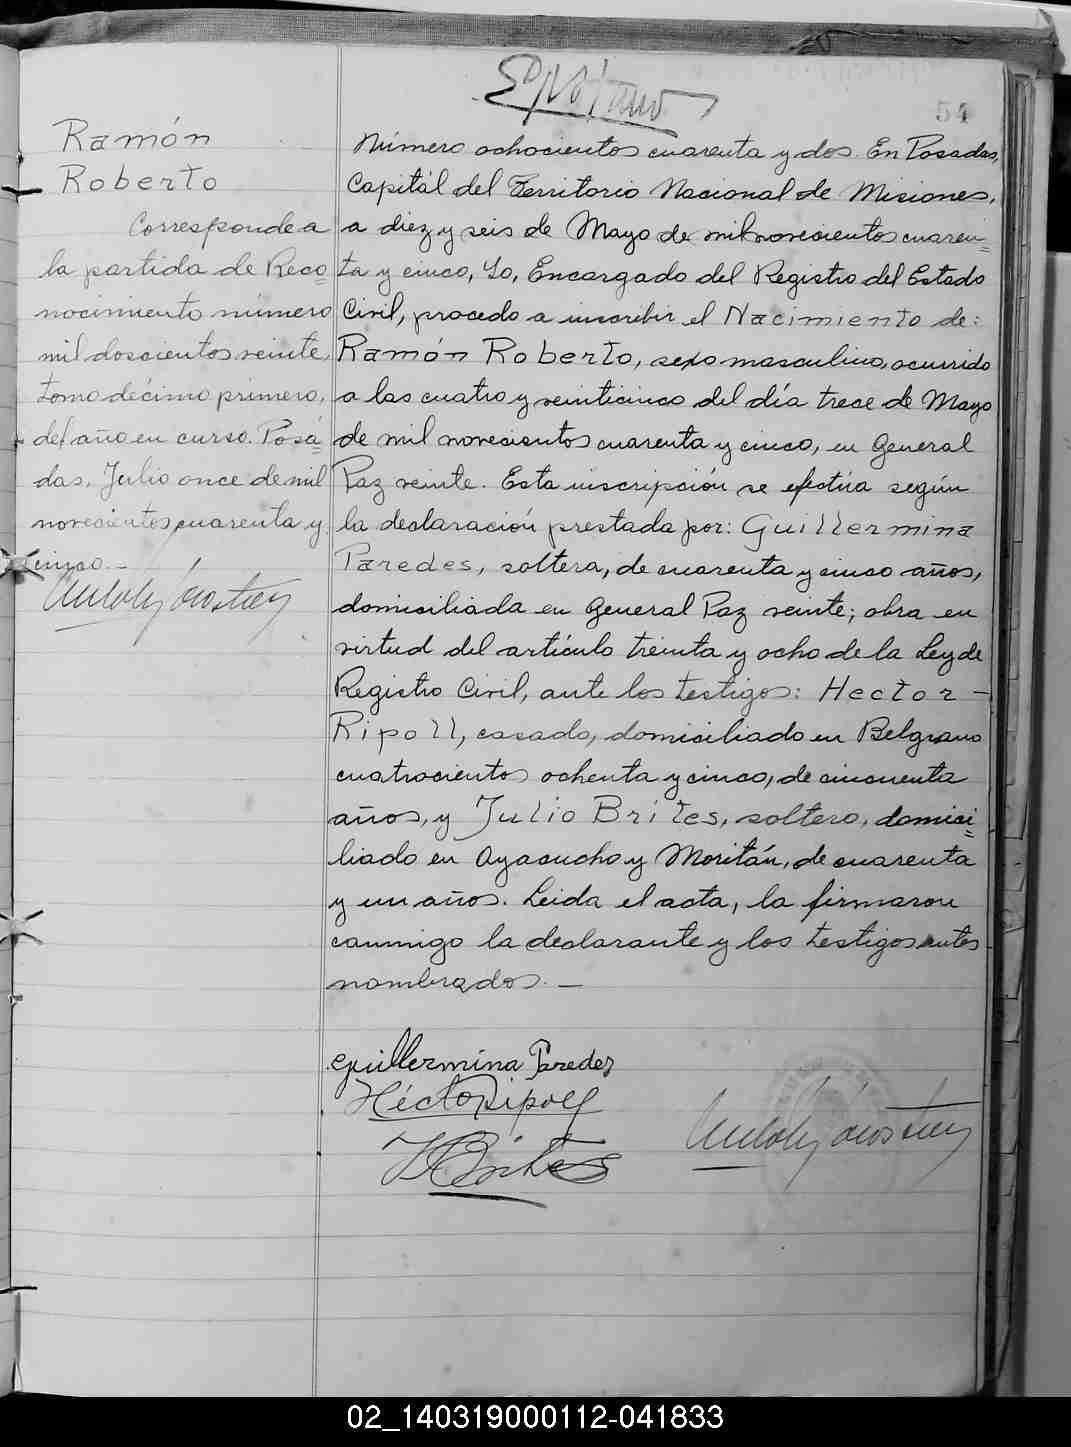 54
Ramón
Roberto
Corresponde a
la partida de Reco=
nocimiento número
mil doscientos veinte,
tomo décimo primero,
del año en curso. Posa=
das, Julio once de mil
novecientos cuarenta y
cinco.-
Número ochocientos cuarenta y dos. En Posadas,
Capitál del Territorio Nacional de Misiones,
a diez y seis de Mayo de mil novecientos cuaren=
ta y cinco, Yo, Encargado del Registro del Estado
Civil, procedo a inscribir el Nacimiento de:
Ramón Roberto, sexo masculino, ocurrido
a las cuatro y veinticinco del día trece de Mayo
de mil novecientos cuarenta y cinco, en General
Paz veinte. Esta inscripción se efectúa según
la declaración prestada por: Guillermina
Paredes, soltera, de cuarenta y cinco años,
domiciliada en General Paz veinte; obra en
virtud del artículo treinta y ocho de la Ley de
Registro Civil, ante los testigos: Hector -
Ripoll, casado, domiciliado en Belgrano
cuatrocientos ochenta y cinco, de cincuenta
años, y Julio Brites, soltero, domici=
liado en Ayacucho y Moritán, de cuarenta
y un años. Leida el acta, la firmaron
conmigo la declarante y los testigos antes
nombrados. -
Guillermina Paredes
Héctor Ripoll
J Brites
02_140319000112-041833